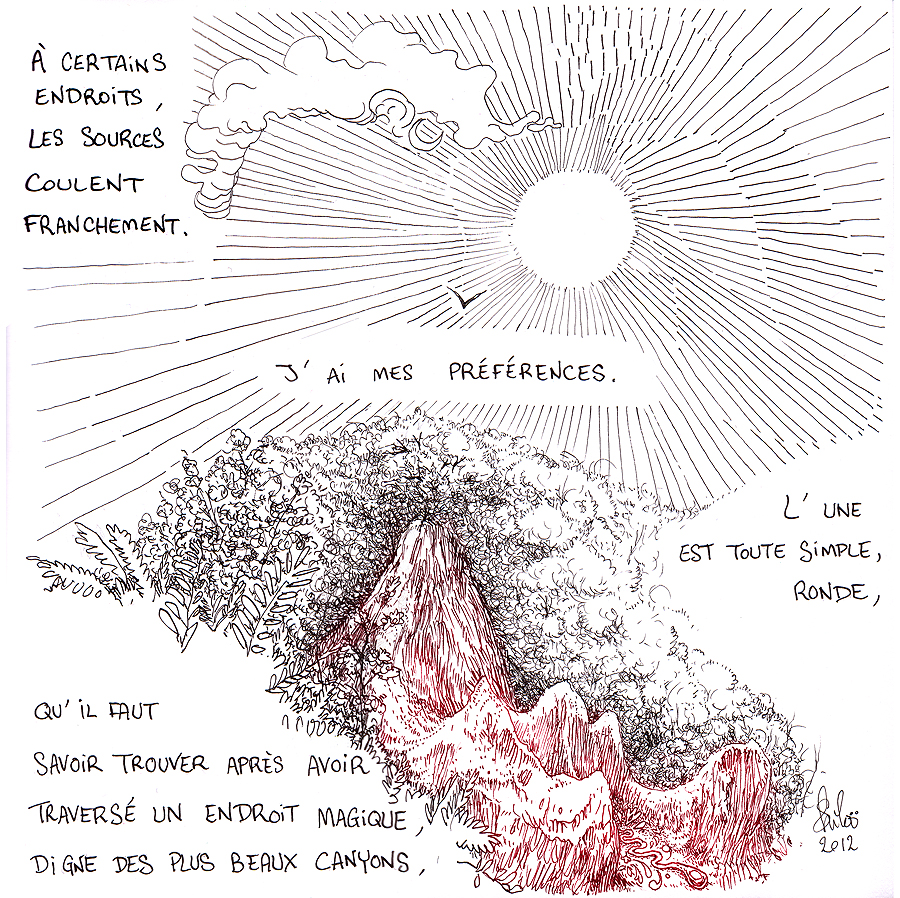 À CERTAINS
ENDROITS,
LES SOURCES
COULENT
FRANCHEMENT.
J'AI MES PRÉFÉRENCES.
L'UNE
EST TOUTE SIMPLE,
RONDE,
QU'IL FAUT
SAVOIR TROUVER APRÈS AVOIR
TRAVERSÉ UN ENDROIT MAGIQUE,
DIGNE DES PLUS BEAUX CANYONS,
2012